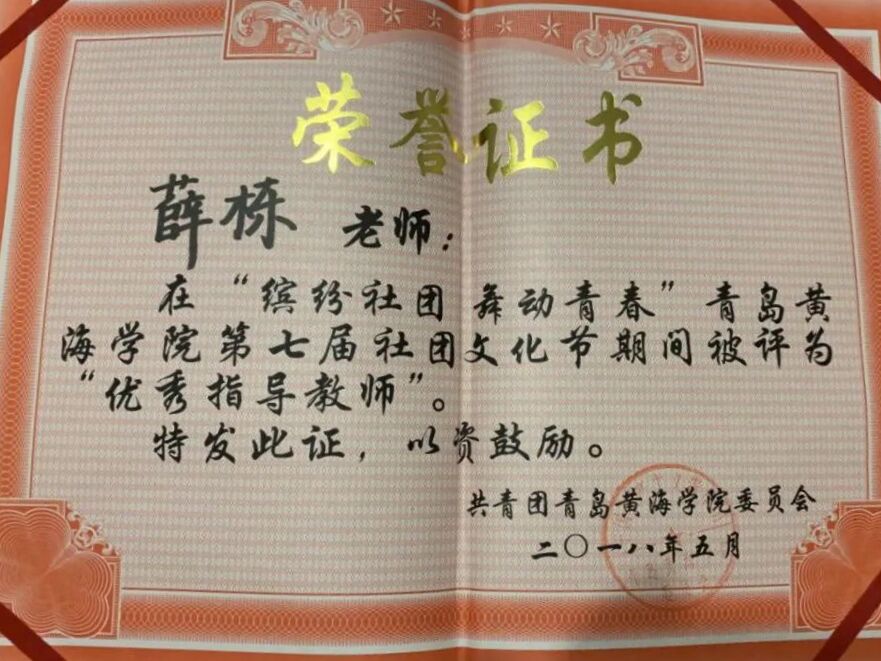 荣誉证书
薛栋 老师：
在“缤纷社团 舞动青春”青岛黄
海学院第七届社团文化节期间被评为
“优秀指导教师”。
特发此证，以资鼓励。
共青团青岛黄海学院委员会
二〇一八年五月